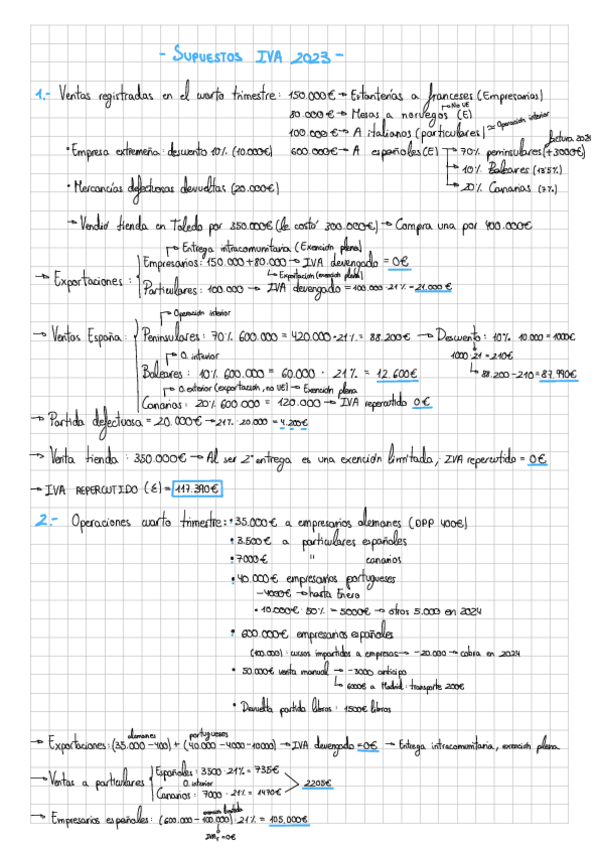 - SUPUESTOS IVA 2023 -
1.- Ventas registradas en el cuarto trimestre: 150.000€ → Estanterías a franceses (Empresarios)
→ No UE
80.000€ → Mesas a noruegos (E)
100.000€ → A italianos (particulares) ≃ Operación interior
factura 2024
· Empresa extremeña: descuento 10% (10.000€) 600.000€ → A españoles (E) → 70% peninsulares (+3000€)
→ 10% Baleares (18'5%)
· Mercancías defectuosas devueltas (20.000€) → 20% Canarias (7%)
→ Vendió tienda en Toledo por 350.000€ (le costó 300.000€) → Compra una por 400.000€
→ Entrega intracomunitaria (Exención plena)
Empresarios: 150.000 + 80.000 → IVA devengado = 0€
→ Exportaciones:
↳ Exportación (exención plena)
Particulares: 100.000 → IVA devengado = 100.000 · 21% = 21.000€
→ Operación interior
→ Ventas España: Peninsulares: 70% 600.000 = 420.000 · 21% = 88.200€ → Descuento: 10% 10.000 = 1000€
→ O. interior
1000 · 21 = 210€
Baleares: 10% 600.000 = 60.000 · 21% = 12.600€
↳ 88.200 - 210 = 87.990€
→ O. exterior (exportación, no UE) → Exención plena
Canarias: 20% 600.000 = 120.000 → IVA repercutido 0€
→ Partida defectuosa = 20.000€ → 21% · 20.000 = 4.200€
→ Venta tienda: 350.000€ → Al ser 2ª entrega es una exención limitada, IVA repercutido = 0€
→ IVA REPERCUTIDO (Σ) = 117.390€
2.- Operaciones cuarto trimestre: · 35.000€ a empresarios alemanes (DPP 400€)
· 3.500€ a particulares españoles
· 7000€ " canarios
· 40.000€ empresarios portugueses
-4000€ → hasta Enero
· 10.000€ · 50% = 5000€ → otros 5.000 en 2024
· 600.000€ empresarios españoles
(100.000) cursos impartidos a empresas → -20.000 → cobra en 2024
· 50.000€ venta manual → -3000 anticipo
↳ 6000€ a Madrid: transporte 200€
· Devuelta partida libros: 1500€ libros
alemanes portugueses
→ Exportaciones: (35.000 - 400) + (40.000 - 4000 - 10000) → IVA devengado = 0€ → Entrega intracomunitaria, exención plena
→ Ventas a particulares Españoles: 3500 · 21% = 735€
O. interior
2205€
Canarios: 7000 · 21% = 1470€
exención limitada
→ Empresarios españoles: (600.000 - 100.000) · 21% = 105.000€
= 0€